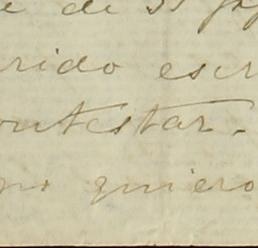 de 31
rido escr
ontestar.
po quiero